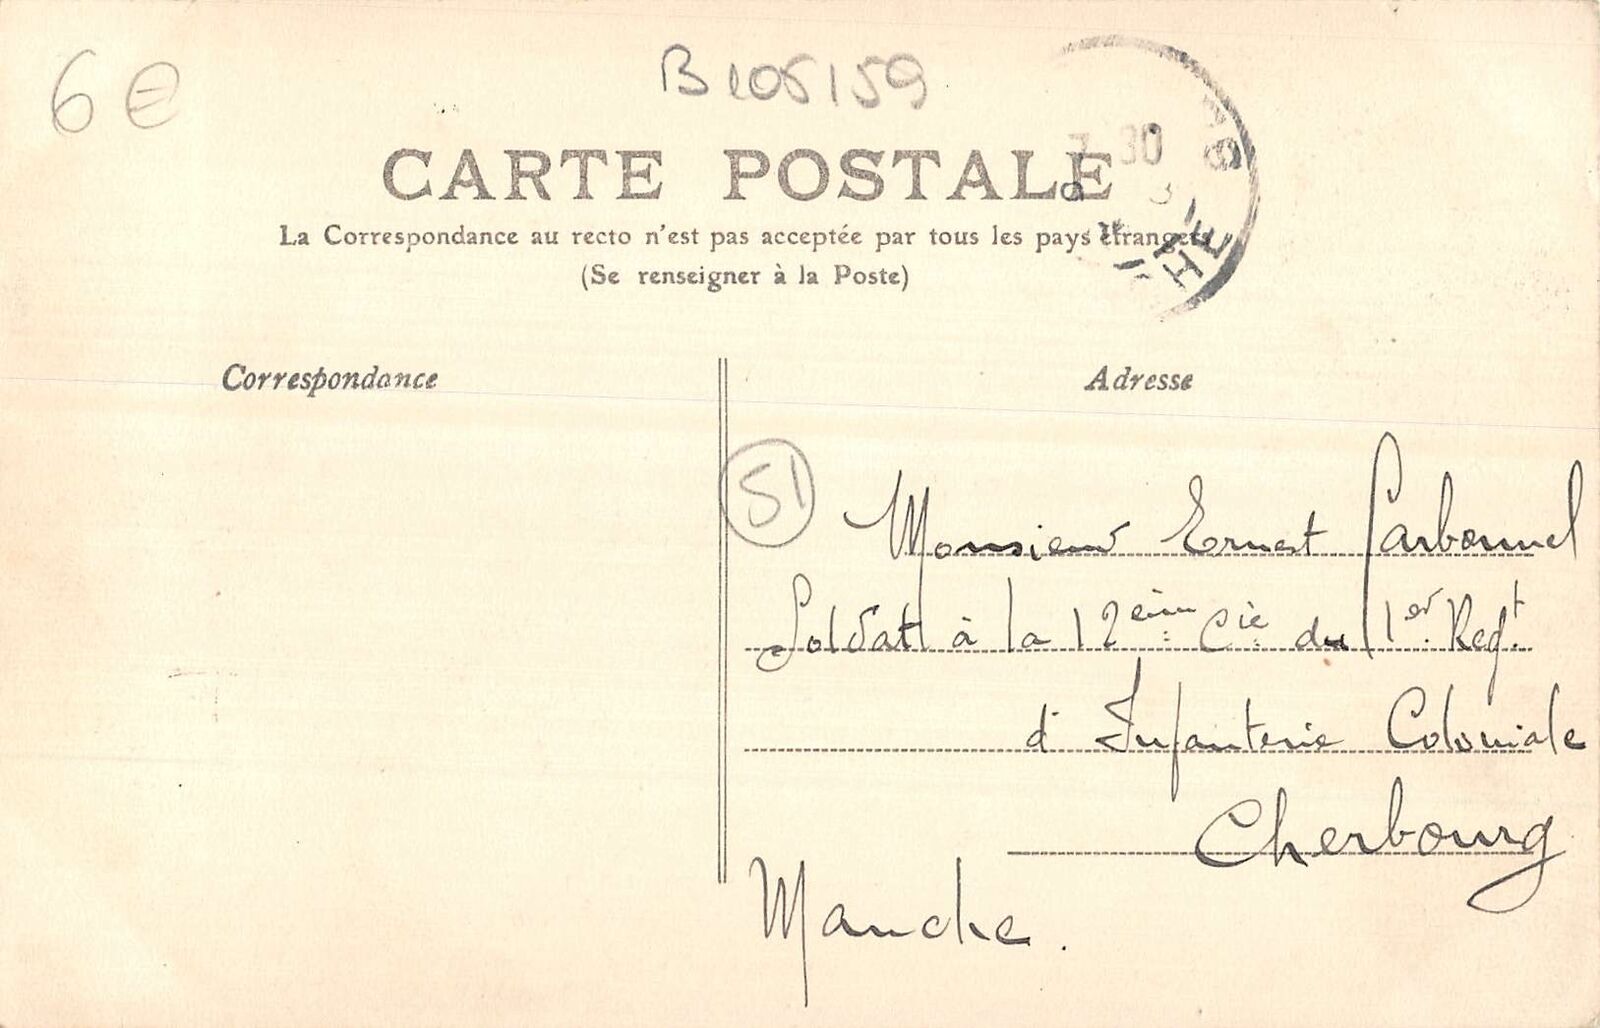 6 €
B 105159
CARTE POSTALE
La Correspondance au recto n'est pas acceptée par tous les pays étrangers
(Se renseigner à la Poste)
7 30
Correspondance
Adresse
51
Monsieur Ernest Carbonnel
Soldat à la 12ème Cie du 1er Regt
d'Infanterie Coloniale
Cherbourg
Manche.